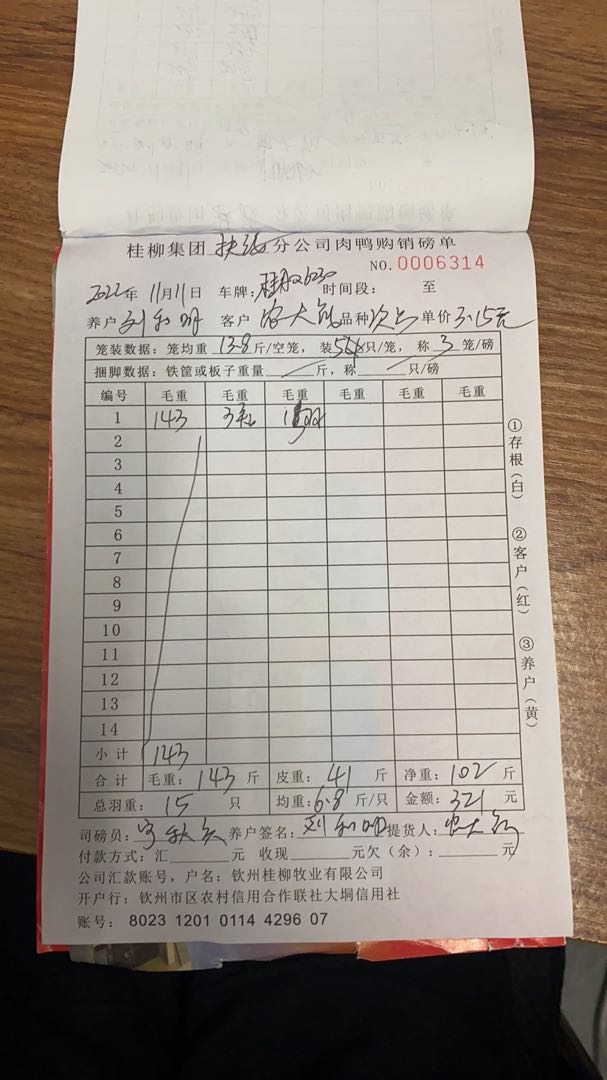 桂柳集团 扶绥 分公司肉鸭购销磅单
NO.0006314
2022年 11月11日 车牌: 时间段: 至
养户 刘和明 客户 农大 品种 次品 单价 3.15元
笼装数据: 笼均重 13.8 斤/空笼, 装 只/笼, 称 3 笼/磅
捆脚数据: 铁筐或板子重量 斤, 称 只/磅
编号 毛重 毛重 毛重 毛重 毛重 毛重
1 143 3
2
3
4
5
6
7
8
9
10
11
12
13
14
小计 143
合计 毛重: 143 斤 皮重: 41 斤 净重: 102 斤
总羽重: 15 只 均重: 6.8 斤/只 金额: 321 元
司磅员: 养户签名: 刘和明 提货人: 农大
付款方式: 汇 元 收现 元欠(余): 元
公司汇款账号, 户名: 钦州桂柳牧业有限公司
开户行: 钦州市区农村信用合作联社大垌信用社
账号: 8023 1201 0114 4296 07
①存根(白)
②客户(红)
③养户(黄)